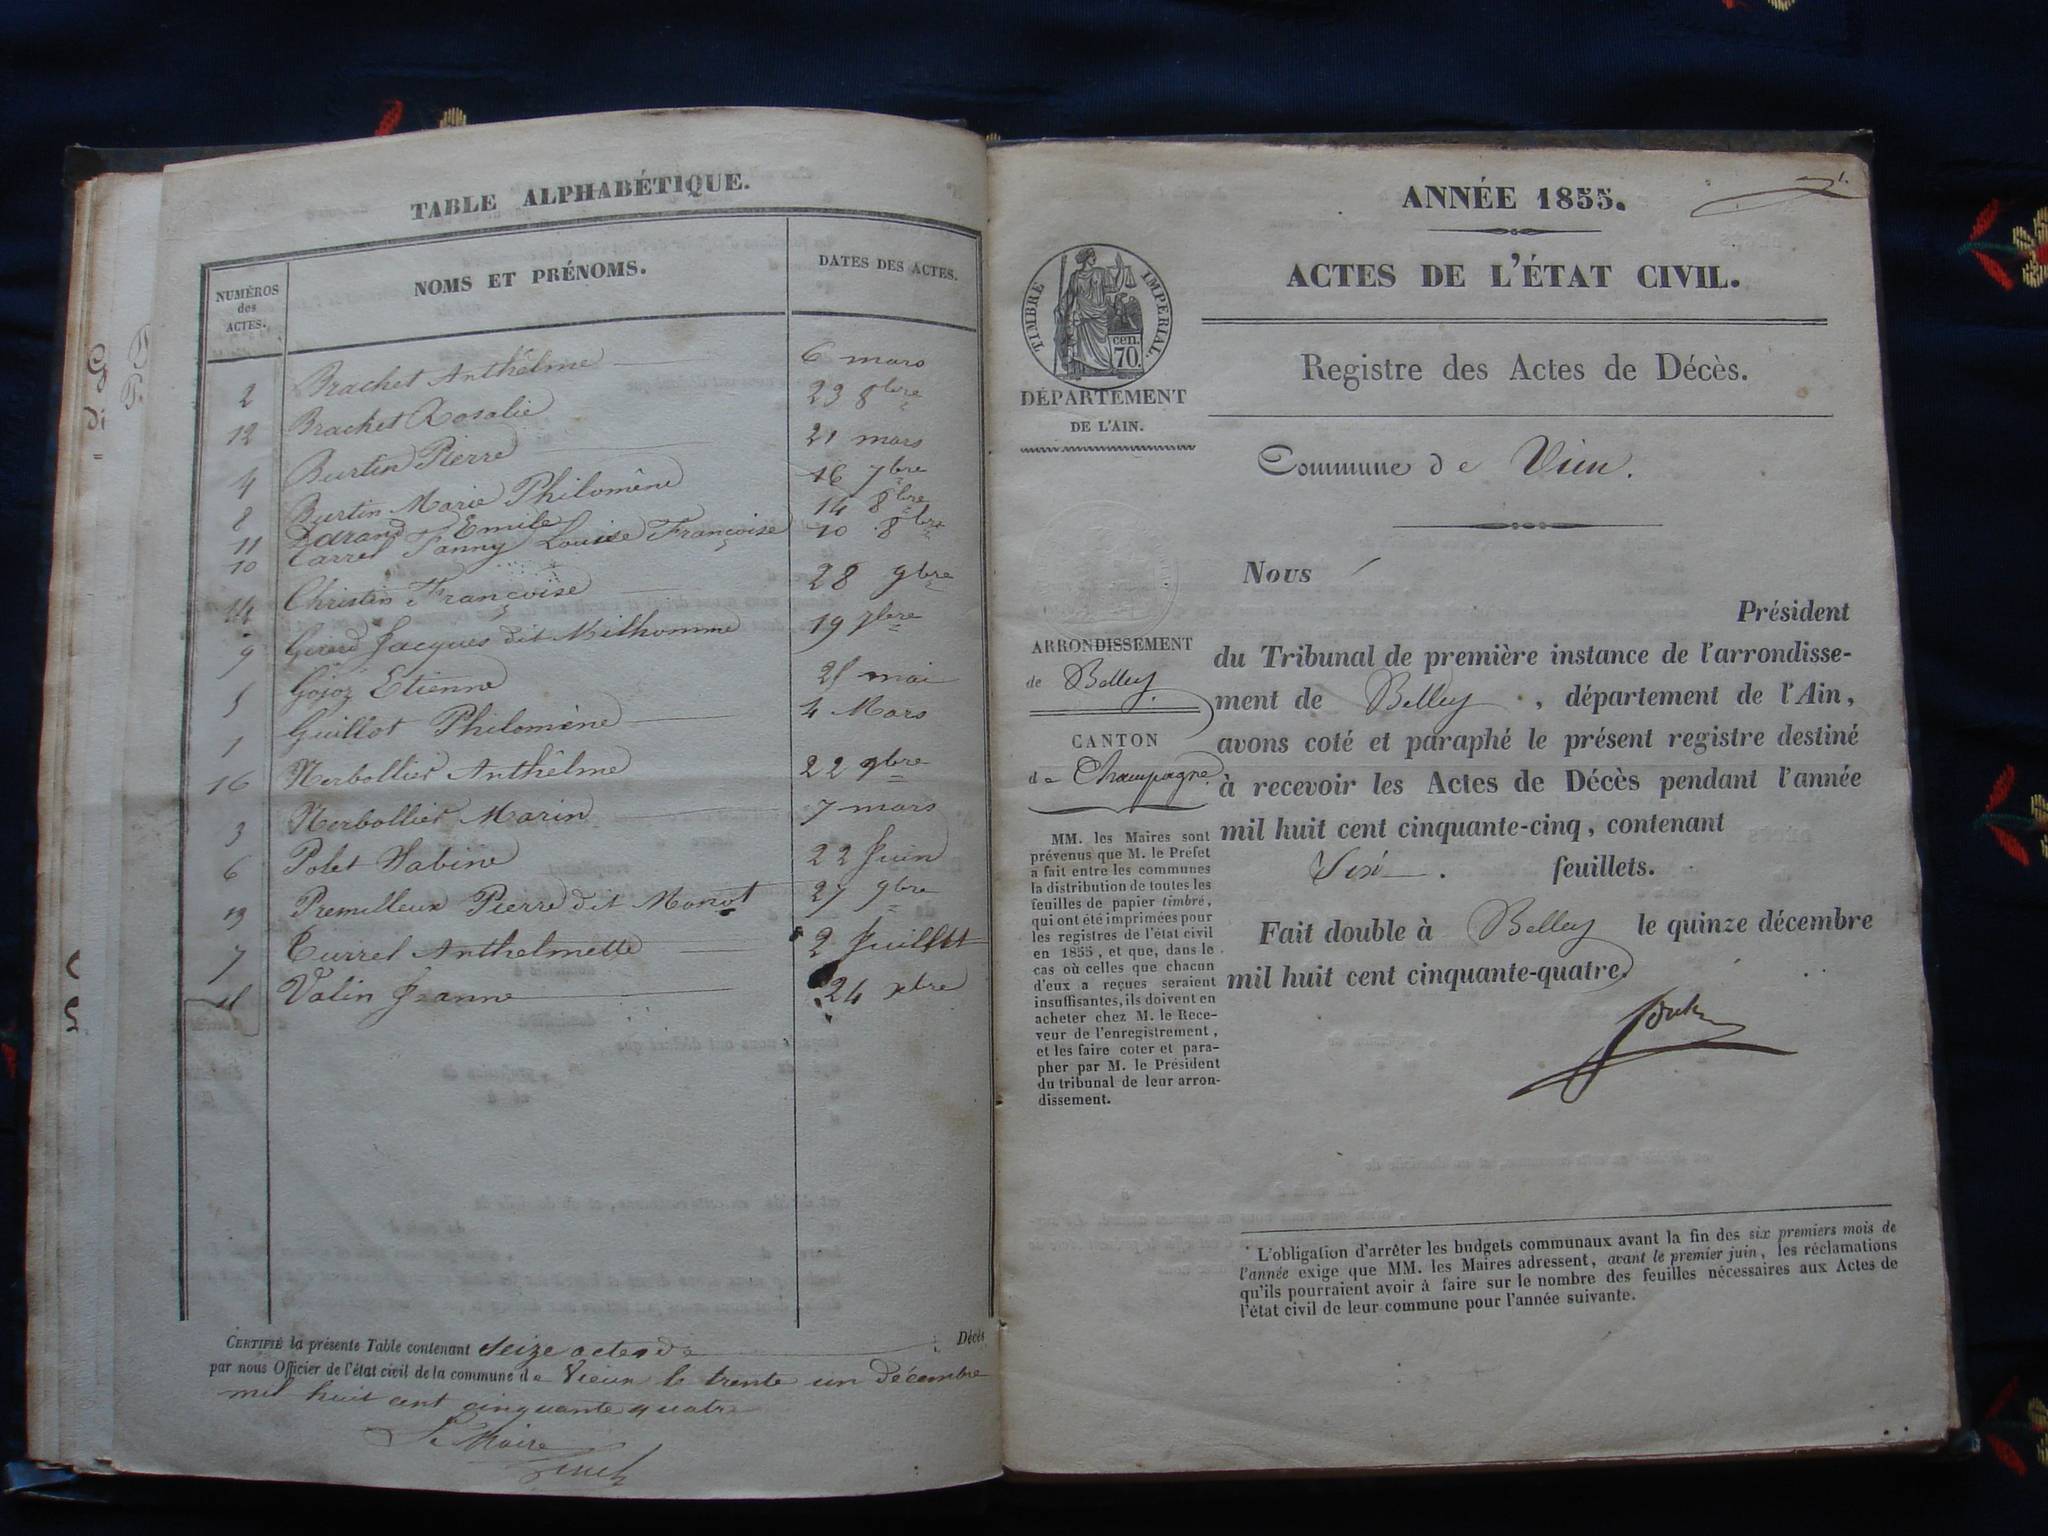 TABLE ALPHABÉTIQUE.
NUMÉROS
des
ACTES.
NOMS ET PRÉNOMS.
DATES DES ACTES.
2 Brachet Anthelme 6 mars
12 Brachet Rosalie 23 8bre
4 Burtin Pierre 21 mars
8 Burtin Marie Philomène 16 7bre
11 Emile 14 8bre
10 Carrel Fanny Louise Françoise 10 8bre
14 Christin Françoise 28 9bre
9 Girard Jacques dit Milhomme 19 7bre
5 Gojoz Etienne mai
1 Guillot Philomène 4 Mars
16 Nerbollier Anthelme 22 9bre
3 Nerbollier Marin 7 mars
6 Polet Sabine 22 Juin
13 Premilleux Pierre dit Monot 27 9bre
7 Turrel Anthelmette 2 Juillet
Valin Jeanne 24 xbre
CERTIFIÉ la présente Table contenant Seize actes de Décès
par nous Officier de l'état civil de la commune de Vieux le trente un décembre
mil huit cent cinquante quatre
Le Maire
ANNÉE 1855.
ACTES DE L'ÉTAT CIVIL.
TIMBRE IMPÉRIAL.
cen.
70.
DÉPARTEMENT
DE L'AIN.
Registre des Actes de Décès.
Commune de Vieu.
Nous
Président
du Tribunal de première instance de l'arrondisse-
ment de Belley, département de l'Ain,
avons coté et paraphé le présent registre destiné
à recevoir les Actes de Décès pendant l'année
mil huit cent cinquante-cinq, contenant
Six. feuillets.
Fait double à Belley le quinze décembre
mil huit cent cinquante-quatre.
ARRONDISSEMENT
de Belley.
CANTON
de Champagne
MM. les Maires sont
prévenus que M. le Prefet
a fait entre les communes
la distribution de toutes les
feuilles de papier timbré,
qui ont été imprimées pour
les registres de l'état civil
en 1855, et que, dans le
cas où celles que chacun
d'eux a reçues seraient
insuffisantes, ils doivent en
acheter chez M. le Rece-
veur de l'enregistrement,
et les faire coter et para-
pher par M. le Président
du tribunal de leur arron-
dissement.
L'obligation d'arrêter les budgets communaux avant la fin des six premiers mois de
l'année exige que MM. les Maires adressent, avant le premier juin, les réclamations
qu'ils pourraient avoir à faire sur le nombre des feuilles nécessaires aux Actes de
l'état civil de leur commune pour l'année suivante.